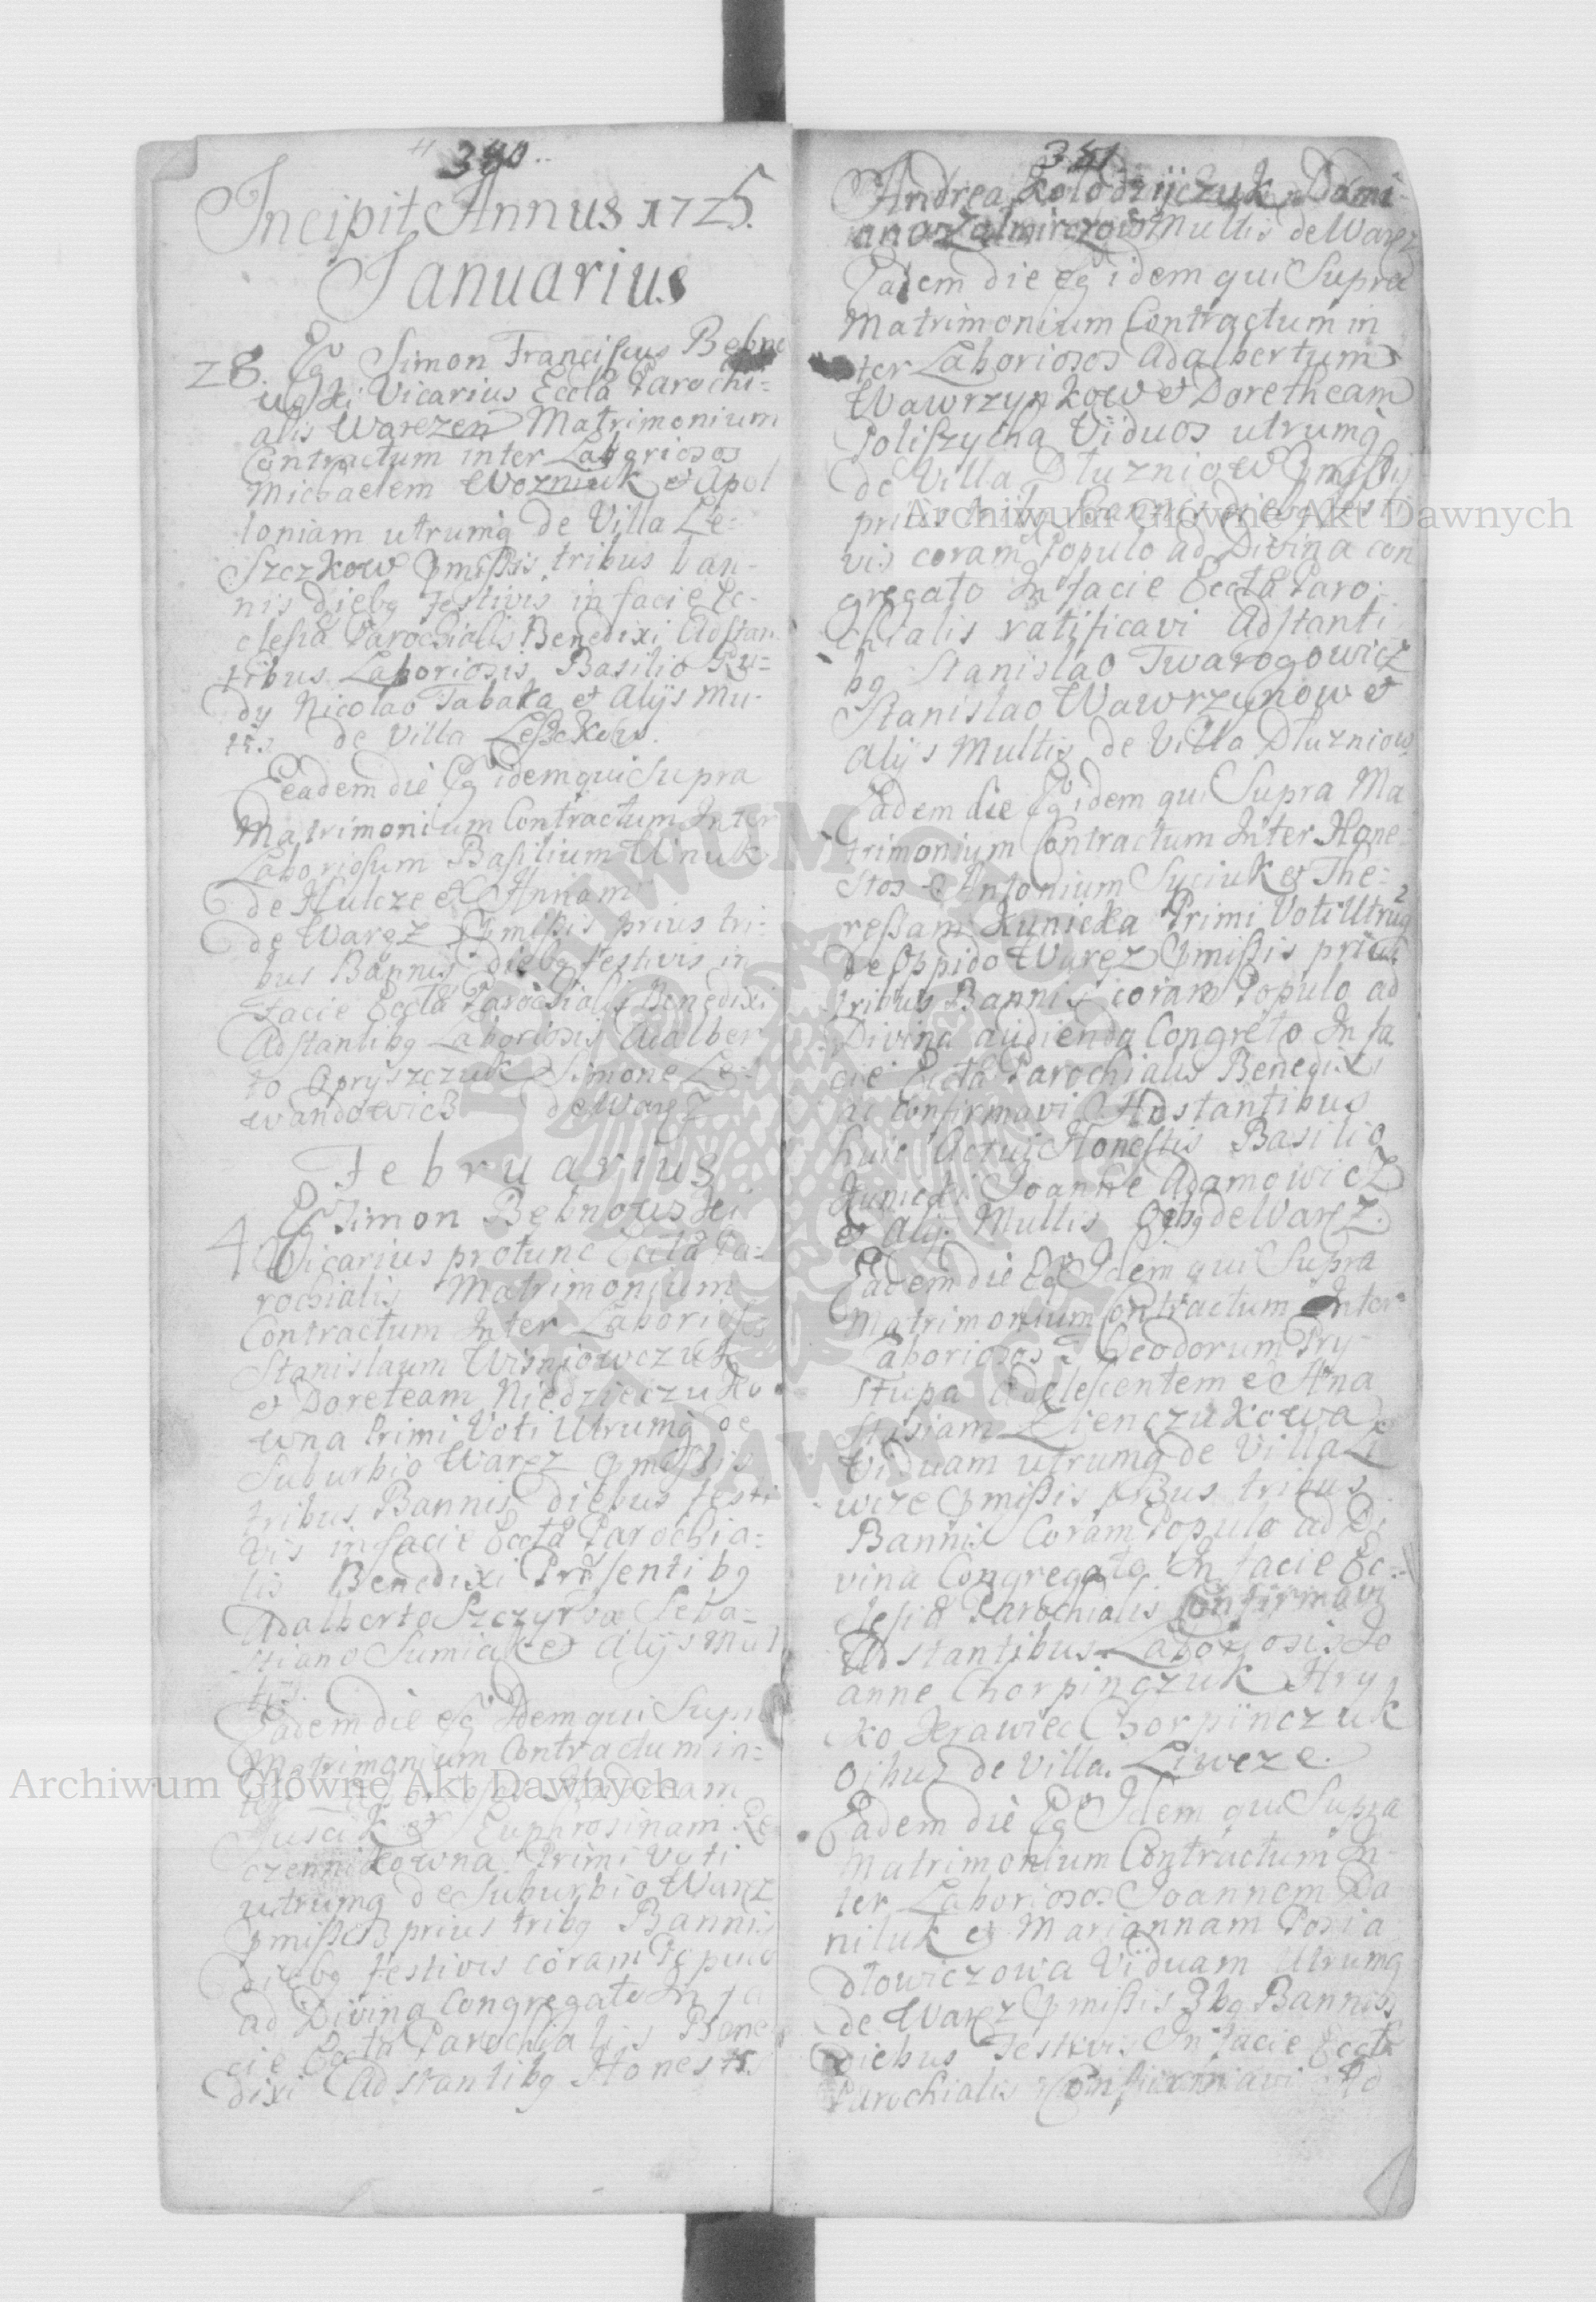 380
Incipit Annus 1725.
Januarius
28. Eg Simon Franciscus Bębno
wski Vicarius Eccla Parochi=
alis Warezen Matrimonium
Contractum inter Laboriosos
Michaelem Wozniuk et Apol
loniam utrumq de Villa Le=
szczkow pmissis tribus ban-
nis diebq festivis in facie Ec-
clesia Parochialis Benedixi Adstan
tibus Laboriosis Basilio Ru=
dy Nicolao Tabaka et Alijs Mu-
tis de Villa Leszckow.
Eeadem die Eg idem qui Supra
Matrimonium Contractum Inter
Laboriosum Basilium Wnuk
de Hulcze et Annam
de Waręz pmissis prius tri-
bus Bannis diebq festivis in
facie Eccla Parochialis Benedixi
Adstantibq Laboriosis Adalber
to Opryszczuk Simone Le-
wandowicz de Waręz
Februarius
4 Eg Simon Bębnowski
Vicarius protunc Eccla Pa=
rochialis Matrimonium
Contractum Inter Laboriosos
Stanislaum Wisniowczuk
et Doreteam Niedzieczuko
wna Primi Voti Utrumq de
Suburbio Waręz pmissis
tribus Bannis diebus festi
vis in facie Eccla Parochia=
lis Benedixi Prsentibq
Adalberto Szczyrba Seba=
stiano Sumiak et Alijs Mul
tis
Eadem die Eg Idem qui Supra
Matrimonium Contractum in=
ter Andream
et Euphrosinam Le
czennikowna Primi Voti
utrumq de Suburbio Waręz
pmissis prius tribq Bannis
diebq festivis coram Populo
ad Divina Congregato In fa
cie Eccla Parochialis Bene
dixi Adstantibq Honestis
381
Andrea Kołodzijczuk Dami
ano Multis de Waręz
Eadem die Eg idem qui Supra
Matrimonium Contractum in
ter Laboriosos Adalbertum
Wawrzynkow et Doretheam
Poliszyena Viduos utrumq
de Villa Dłuzniow pmissis
prius Bannis diebq festi
vis coram Populo ad Divina con
gregato In facie Eccla Paro-
chialis ratificavi Adstanti
bq Stanislao Twarogowicz
Stanislao Wawrzynow et
Alijs Multis de Villa Dluzniow
Eadem die Eg idem qui Supra Ma
trimonium Contractum Inter Hone-
stos Antonium Suciuk et The=
ressam Kunicka Primi Voti Utrüq
de Oppido Waręz pmissis prius
tribus Bannis coram Populo ad
Divina audienda Congreto In fa
cie Eccla Parochialis Benedixi
ac Confirmavi Adstantibus
huic Actui Honestis Basilio
Kunicki Joanne Adamowicz
et Alij Multis de Waręz.
Eadem die Eg Idem qui Supra
Matrimonium Contractum Inter
Laboriosos Theodorum Pry-
stupa Adolescentem et Ana
stasiam Zienczukowa
Viduam utrumq de Villa Li
wcze pmissis tribus
Bannis Coram Populo ad Di
vina Congregato In facie Ec=
clesia Parochialis Confirmavi
Adstantibus Laboriosis Jo
anne Chorpinczuk Hry
ko Krawiec Chorpinczuk
de Villa. Liwcze.
Eadem die Eg Idem qui Supra
Matrimonium Contractum In-
ter Laboriosos Joannem Da
niluk et Mariannam Posia
dlowiczowa Viduam Utrumq
de Waręz pmissis 3bq Bannis
diebus Festivis In facie Eccla
Parochialis Confirmavi Ad
Archiwum Główne Akt Dawnych
Archiwum Główne Akt Dawnych
ARCHIWUM GŁÓWNE AKT DAWNYCH